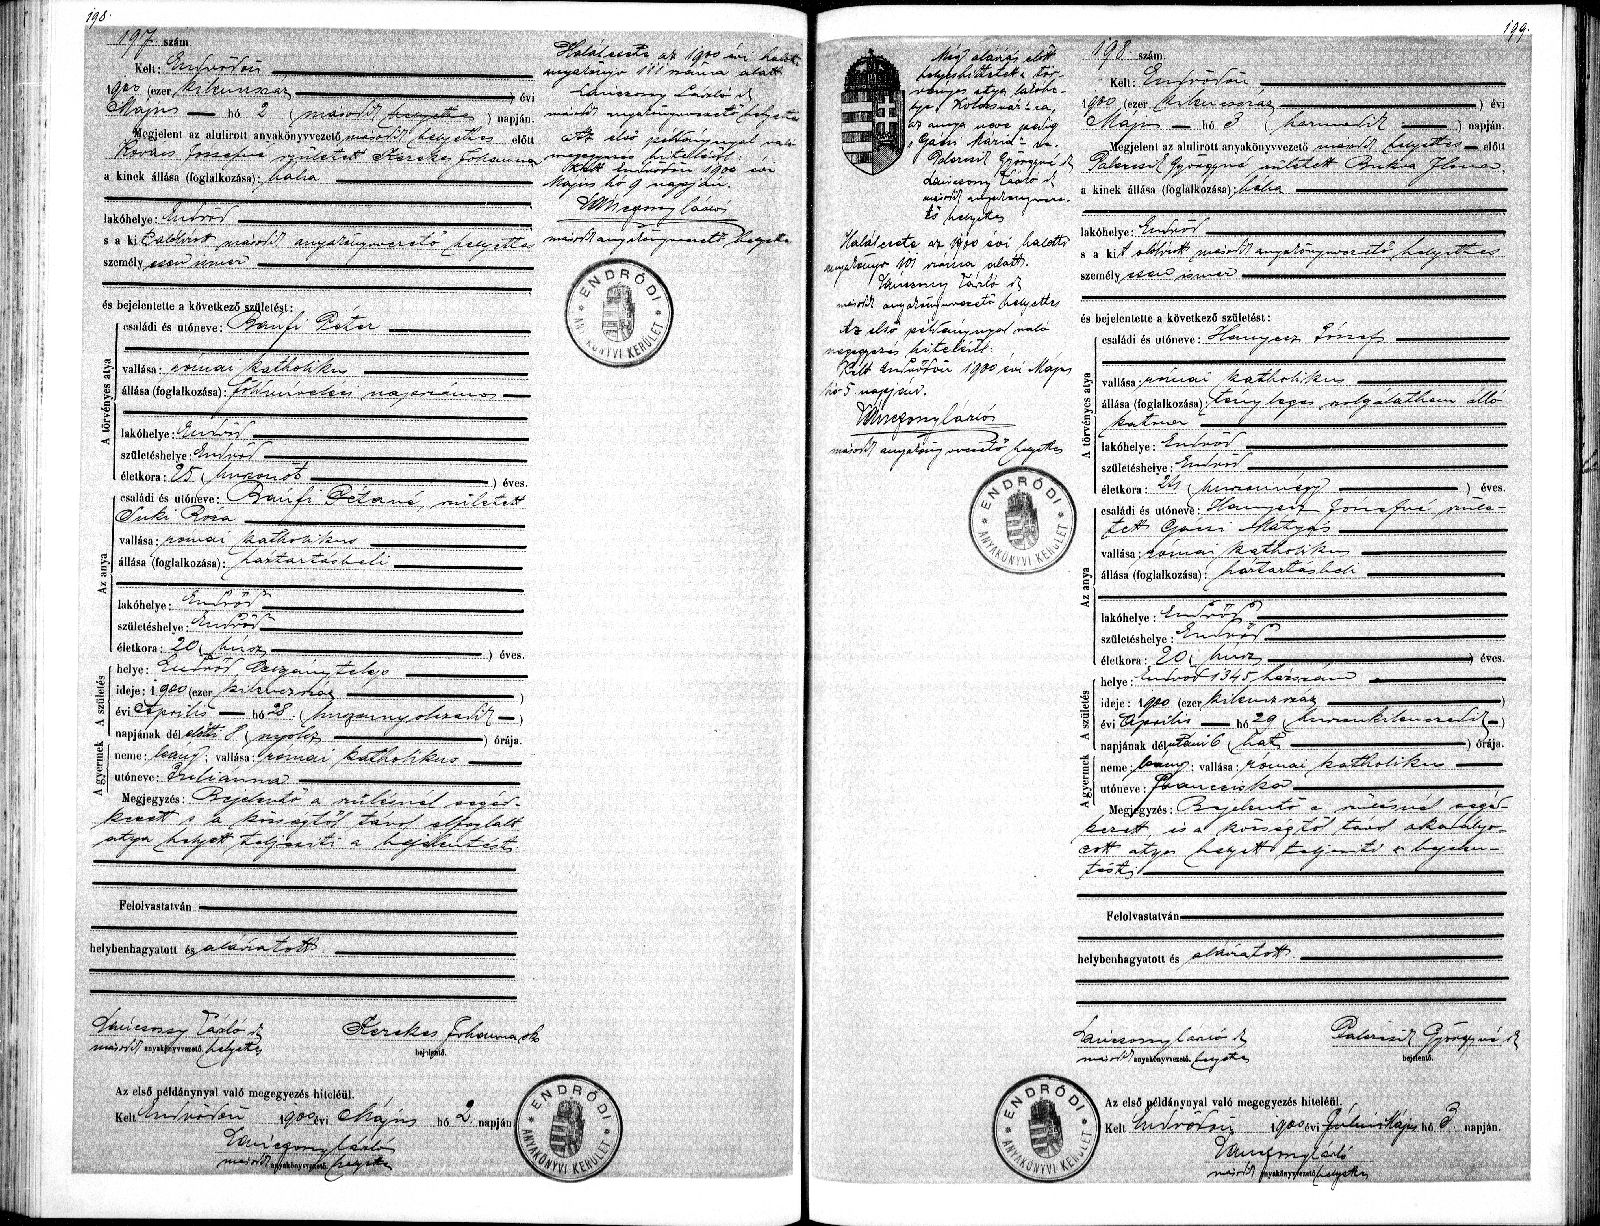 198.
197. szám
Kelt: Endrődön
1900 (ezer kilencszáz) évi
Május hó 2 (második) napján.
Megjelent az alulirott anyakönyvvezető második helyettes előtt
Kovács Józsefné született Kerekes Johanna
a kinek állása (foglalkozása): bába
lakóhelye: Endrőd
s a kit alólirott másodk anyakönyvvezető helyettes
személyesen ismer
és bejelentette a következő születést:
A törvényes atya
családi és utóneve: Bánfi Péter
vallása: római katholikus
állása (foglalkozása): földmívelés napszámos
lakóhelye: Endrőd
születéshelye: Endrőd
életkora: 25 (huszonöt) éves.
Az anya
családi és utóneve: Bánfi Péterné, született
Suki Róza
vallása: római katholikus
állása (foglalkozása): háztartásbeli
lakóhelye: Endrőd
születéshelye: Endrőd
életkora: 20 (húsz) éves.
A születés
helye: Endrőd
ideje: 1900 (ezer kilenczszáz)
évi április hó 28 (huszonnyolczadik)
napjának délelőtti 8 (nyolcz) órája.
A gyermek
neme: leány; vallása: római katholikus
utóneve: Juliánna
Megjegyzés: Bejelentő a szülésnél segéd-
kezett s a községtől távol elfoglalt
atya helyett teljesiti a bejelentést
Felolvastatván
helybenhagyatott és aláiratott
Lánczsony László
másodk anyakönyvvezető helyettes
Kerekes Johanna
bejelentő.
Az első példánynyal való megegyezés hiteléül.
Kelt Endrődön 1900 évi Május hó 2. napján
másodk anyakönyvvezető helyettes
Halálesete az 1900 évi halotti
anyakönyv 111 száma alatt
László
másodk anyakönyvvezető helyettes
Az első példánynyal való
megegyezés hiteléül.
Kelt Endrődön 1900 évi
Május hó 9 napján.
másodk anyakönyvvezető helyettes
ENDRŐDI
ANYAKÖNYVI KERÜLET
ENDRŐDI
ANYAKÖNYVI KERÜLET
199.
Még aláirás előtt
helyesbittetett a tör-
vényes atya lakóhe-
lye Kolozsvár-ra,
az anya neve pedig
Gácsi Mária-ra.
Györgyné
László
másodk anyakönyvveze-
tő helyettes
Halálesete az 1900 évi halotti
anyakönyv 101 száma alatt.
László
másodk anyakönyvvezető helyettes
Az első példánynyal való
megegyezés hiteléül.
Kelt Endrődön 1900 évi Május
hó 5 napján.
másodk anyakönyvvezető helyettes
ENDRŐDI
ANYAKÖNYVI KERÜLET
198. szám
Kelt: Endrődön
1900 (ezer kilenczszáz) évi
Május hó 3 (harmadik) napján.
Megjelent az alulirott anyakönyvvezető másodk helyettes előtt
Györgyné született Ilona
a kinek állása (foglalkozása): bába
lakóhelye: Endrőd
s a kit alólirott másodk anyakönyvvezető helyettes
személyesen ismer
és bejelentette a következő születést:
A törvényes atya
családi és utóneve: Hanyecz József
vallása: római katholikus
állása (foglalkozása): tényleges szolgálatban álló
katona
lakóhelye: Endrőd
születéshelye: Endrőd
életkora: 24 (huszonnégy) éves.
Az anya
családi és utóneve: Hanyecz Józsefné szüle-
tett Gácsi Mátyás
vallása: római katholikus
állása (foglalkozása): háztartásbeli
lakóhelye: Endrőd
születéshelye: Endrőd
életkora: 20 (húsz) éves.
A születés
helye: Endrőd 1345 házszám
ideje: 1900 (ezer kilenczszáz)
évi április hó 29 (huszonkilenczedik)
napjának délutáni 6 (hat) órája.
A gyermek
neme: leány; vallása: római katholikus
utóneve: Franciska
Megjegyzés: Bejelentő a szülésnél segéd
kezett és a községtől távol akadályo-
zott atya helyett teljesiti a bejelen-
tést
Felolvastatván
helybenhagyatott és aláiratott
másodk anyakönyvvezető helyettes
Györgyné
bejelentő.
Az első példánynyal való megegyezés hiteléül.
Kelt Endrődön 1900 évi Május hó 3 napján.
másodk anyakönyvvezető helyettes
ENDRŐDI
ANYAKÖNYVI KERÜLET